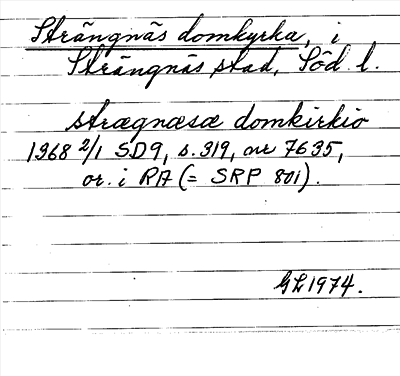 Strängnäs domkyrka, i
Strängnäs stad, Söd. l.
strægnæsæ domkirkio
1368 2/1 SD9, s. 319, nr 7635,
or. i RA (= SRP 801).
GL 1974.